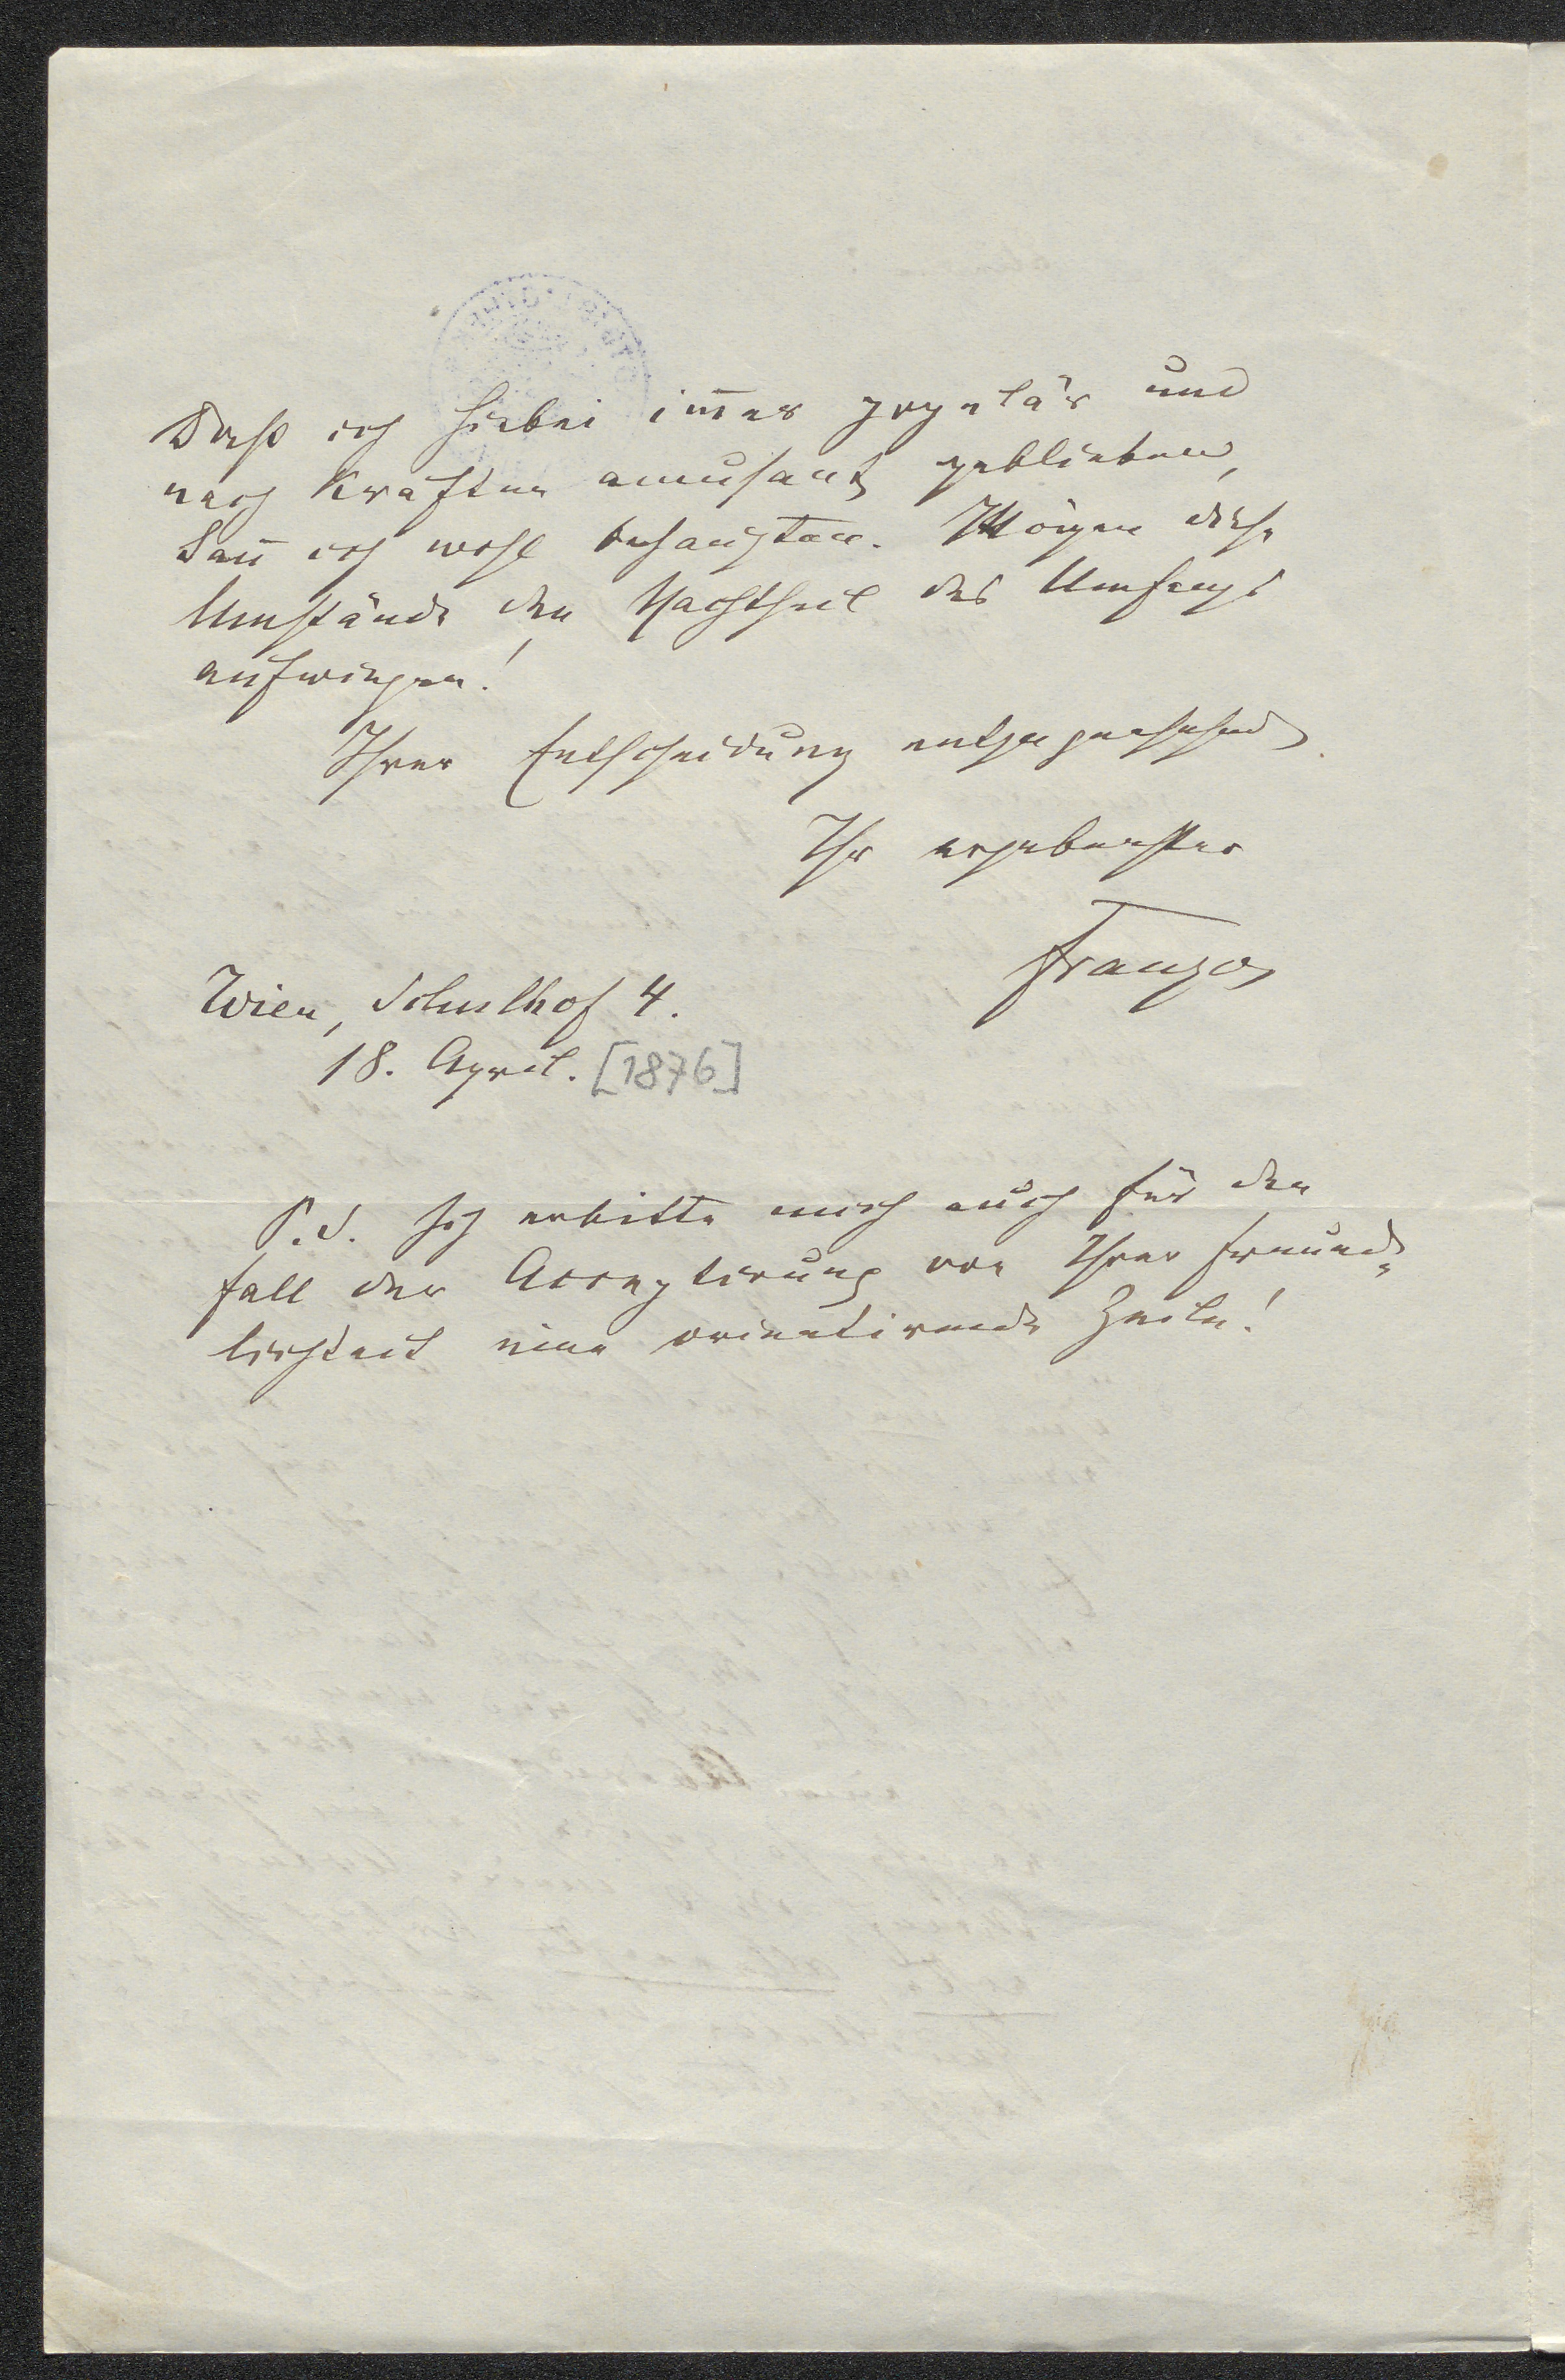 Daß ich hiebei im̄er populär und
nach Kräften amusant geblieben,
kan̄ ich wohl behaupten. Mögen diese
Umstände den Nachtheil des Umfangs
aufwiegen!
Ihrer Entscheidung entgegensehend
Ihr ergebenster
Franzos
Wien, Schulhof 4.
18. April. [1876]
P.S. Ich erbitte mich auch für den
Fall der Acceptirung von Ihrer Freund-
lichkeit eine orientirende Zeile!